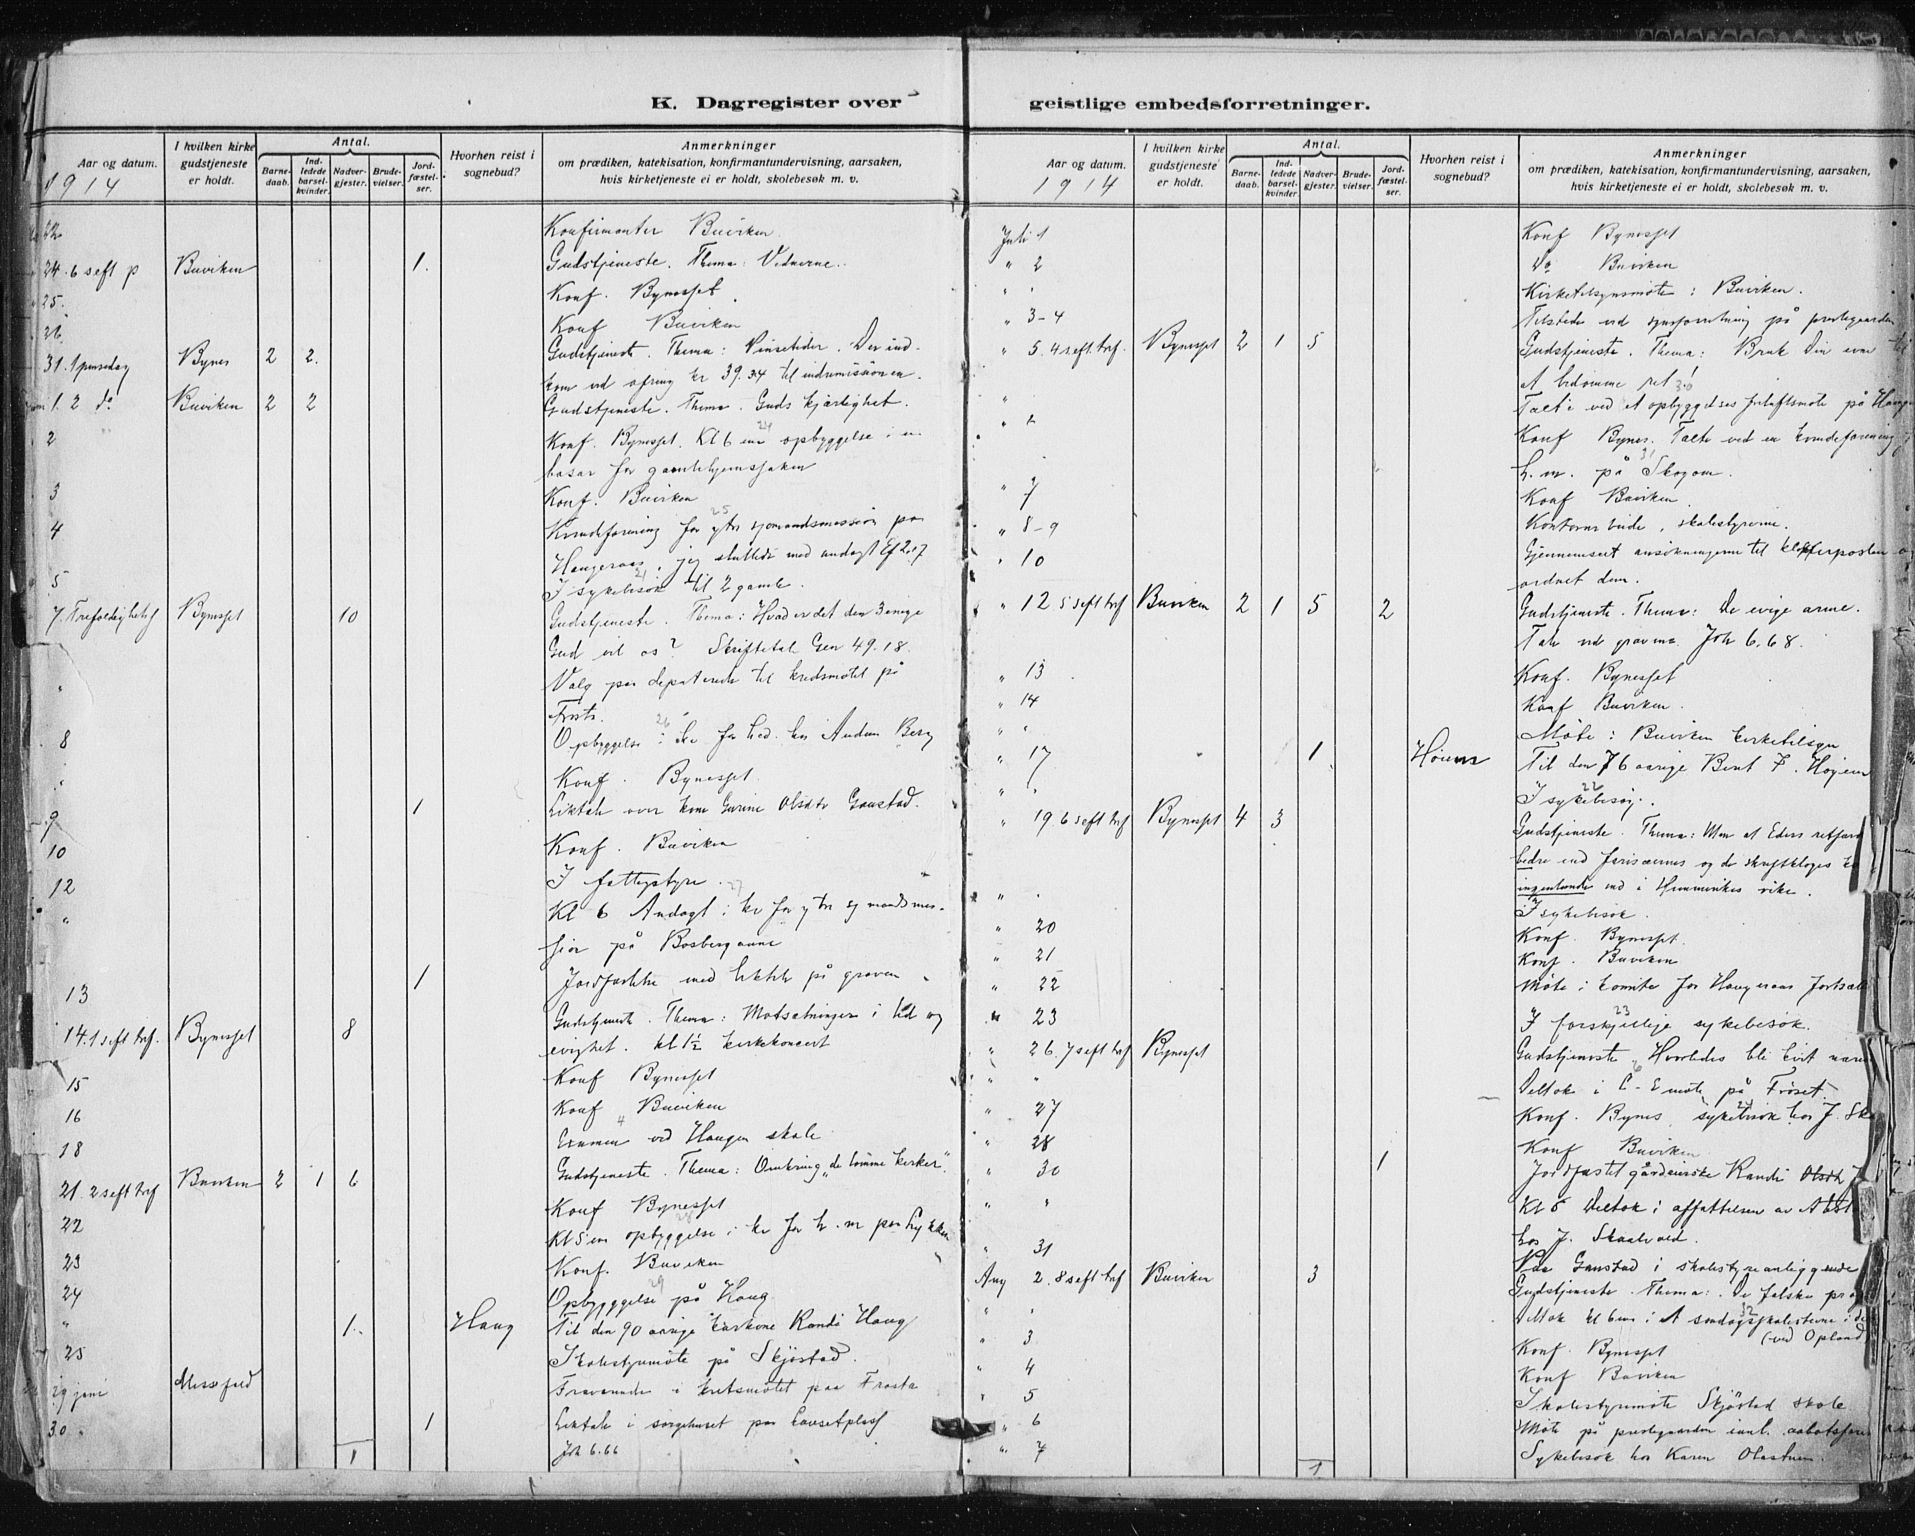 K. Dagregister over
Aar og datum.
1914
I hvilken kirke gudstjeneste er holdt.
Antal.
Barnedaab.
Indledede barselkvinder.
Nadvergjester.
Brudevielser.
Jordfæstelser.
Hvorhen reist i sognebud?
Anmerkninger
om prædiken, katekisation, konfirmantundervisning, aarsaken,
hvis kirketjeneste ei er holdt, skolebesøk m. v.
22 Konfirmanter Buviken
24. 6 s eft p Buviken 1. Gudstjeneste. Thema: Vidnerne.
25. Konf. Bynesset
26 Konf Buviken
31. 1 pinsedag Bynes 2 2. Gudstjeneste. Thema: Pinsetider. Der ind-
kom ved ofring kr 39.34 til indremissionen.
1. 2 do Buviken 2 2 Gudstjeneste. Thema. Guds kjærlighet.
2 Konf. Bynesset. Kl 6 em opbyggelse i en
24
basar for gamlehjemssaken
3 Konf. Buviken
25
4 Kvindeforening for ytre sjømandsmission paa
Haugeraas, jeg sluttede med andagt Ef 2.17
21
5 I sykebesøk til 2 gamle.
7. Trefoldighetsf Bynesset 10 Gudstjeneste. Thema: Hvad er det den 3 enige
Gud vil os? Skriftetale Gen 49.18.
" Valg paa deputerede til kredsmøtet på
Frosta.
26
8 Opbyggelse i kv for hed. hos Audun Berg
" Konf. Bynesset.
9 1 Liktale over kone Gurine Olsdtr Gaustad.
10 Konf. Buviken
12 I fattigstyre.
27
" Kl 6 Andagt i kv for ytre sjømandsmis-
sion på Bosbergaune
13 1 Jordfæstelse med liktale på graven
14. 1 s eft trf. Bynesset 8 Gudstjeneste. Thema: Motsætningen i tid og
evighet. kl 1½ kirkekoncert
15 Konf Bynesset
16 Konf Buviken
4
18 Examen ved Haugen skole
21. 2 s eft trf Buviken 2 1 6 Gudstjeneste. Thema: Omkring "de tomme kirker".
22 Konf Bynesset
28
Kl 5 em opbyggelse i kv for h. m paa Lykken
23 Konf. Buviken
29
24 Opbyggelse på Haug
" 1. Haug Til den 90 aarige kårkone Randi Haug
25 Skolestyrmøte på Skjøstad.
29 juni Messefald Fraværende i kretsmøtet paa Frosta
30 " 1 Liktale i sørgehuset paa
Joh 6.66
1
geistlige embedsforretninger.
Aar og datum.
1914
I hvilken kirke gudstjeneste er holdt.
Antal.
Barnedaab.
Indledede barselkvinder.
Nadvergjester.
Brudevielser.
Jordfæstelser.
Hvorhen reist i sognebud?
Anmerkninger
om prædiken, katekisation, konfirmantundervisning, aarsaken,
hvis kirketjeneste ei er holdt, skolebesøk m. v.
Juli 1 Konf Bynesset
" 2 Do Buviken
" " Kirketilsynsmøte i Buviken.
" 3-4 Tilstede ved synsforretning på prestegaarden
" 5. 4 s eft. trf. Bynesset 2 1 5 Gudstjeneste. Thema: Bruk Din evne til
at bedømme ret!
30
" Talte ved et opbyggelses friluftsmøte på Haugen
" Konf Bynes. Talte ved en kvindeforening f
31
h. m. på Skogan.
" 7 Konf Buviken
" 8-9 Kontorarbeide, skolestyrerne.
" 10 Gjennemset ansøkningerne til klokkerposten og
ordnet dem.
" 12 5 s eft trf Buviken 2 1 5 2 Gudstjeneste. Thema: De evige arme.
Tale ved gravene Joh 6,68.
" 13 Konf. Bynesset
" 14 Konf Buviken.
" " Møte i Buviken kirketilsyn
" 17 1 Høiem Til den 76 aarige Bent F. Høyem
22
" " I sykebesøg.
" 19. 6 s eft trf Bynesset 4 3 Gudstjeneste. Thema: Uten at Eders retfærd
bedre end fariseernes og de skriftkloges
ingenlunde ind i Himmerikes rike.
" " I sykebesøk.
" 20 Konf. Bynesset.
" 21 Konf. Buviken
" 22 Møte i komite for Haugeraas
23
" 23 I forskjellige sykebesøk.
" 26. 7 s eft trf Bynesset Gudstjeneste. Hvorledes bli kvit
6
" " Deltok i C-E møte på Frøset.
24
" 27 Konf. Bynes, sykebesøk hos J. Sk
" 28 Konf Buviken
" 30 1 Jordfæstet gårdeierske Randi Olsdtr
" " Kl 6 Deltok i affattelsen av
hos J. Skaalvold.
" 31 Paa Gaustad i skolestyreanliggende
Aug 2. 8 s eft trf Buviken 3 Gudstjeneste. Thema: De falske pro
32
" " Deltok kl 6 em i et søndagsskolestevne i
(ved Opland
" 3 Konf. Bynesset
" 4 Konf Buviken
" 5 Skolestyrmøte Skjøstad skole
" 6 Møte på prestegaarden
" 7 Sykebesøk hos Karen
1